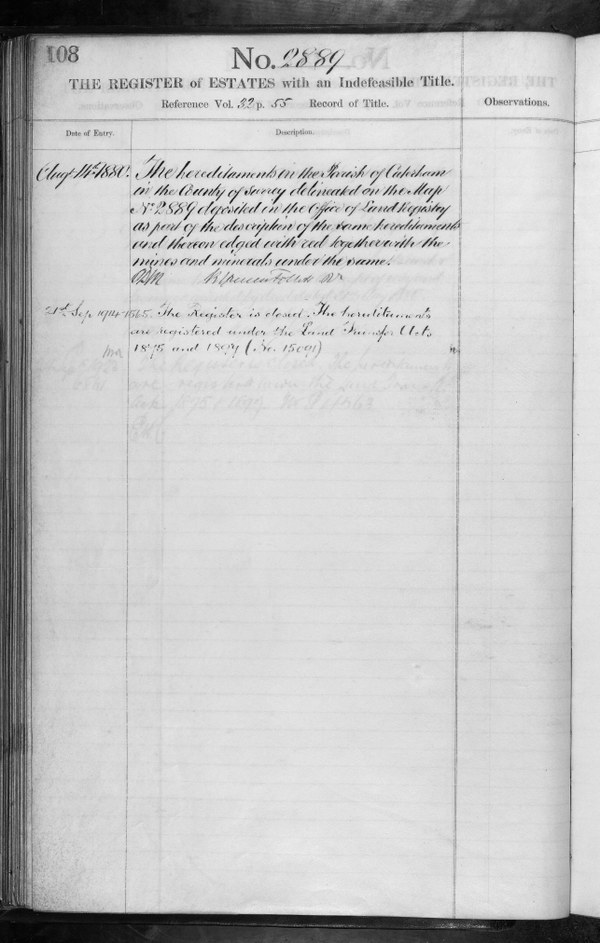 108
No. 2889
THE REGISTER of ESTATES with an Indefeasible Title.
Reference Vol. 32 p. 55 Record of Title.
Observations.
Date of Entry.
Description.
Augt 14th 1880.
The hereditaments in the Parish of Caterham
in the County of Surrey delineated on the Map
No 2889 deposited in the Office of Land Registry
as part of the description of the same hereditaments
and thereon edged with red together with the
mines and minerals under the same.
21st Sep 1914
The Register is closed. The hereditaments
are registered under the Land Transfer Acts
1875 and 1897 (No.